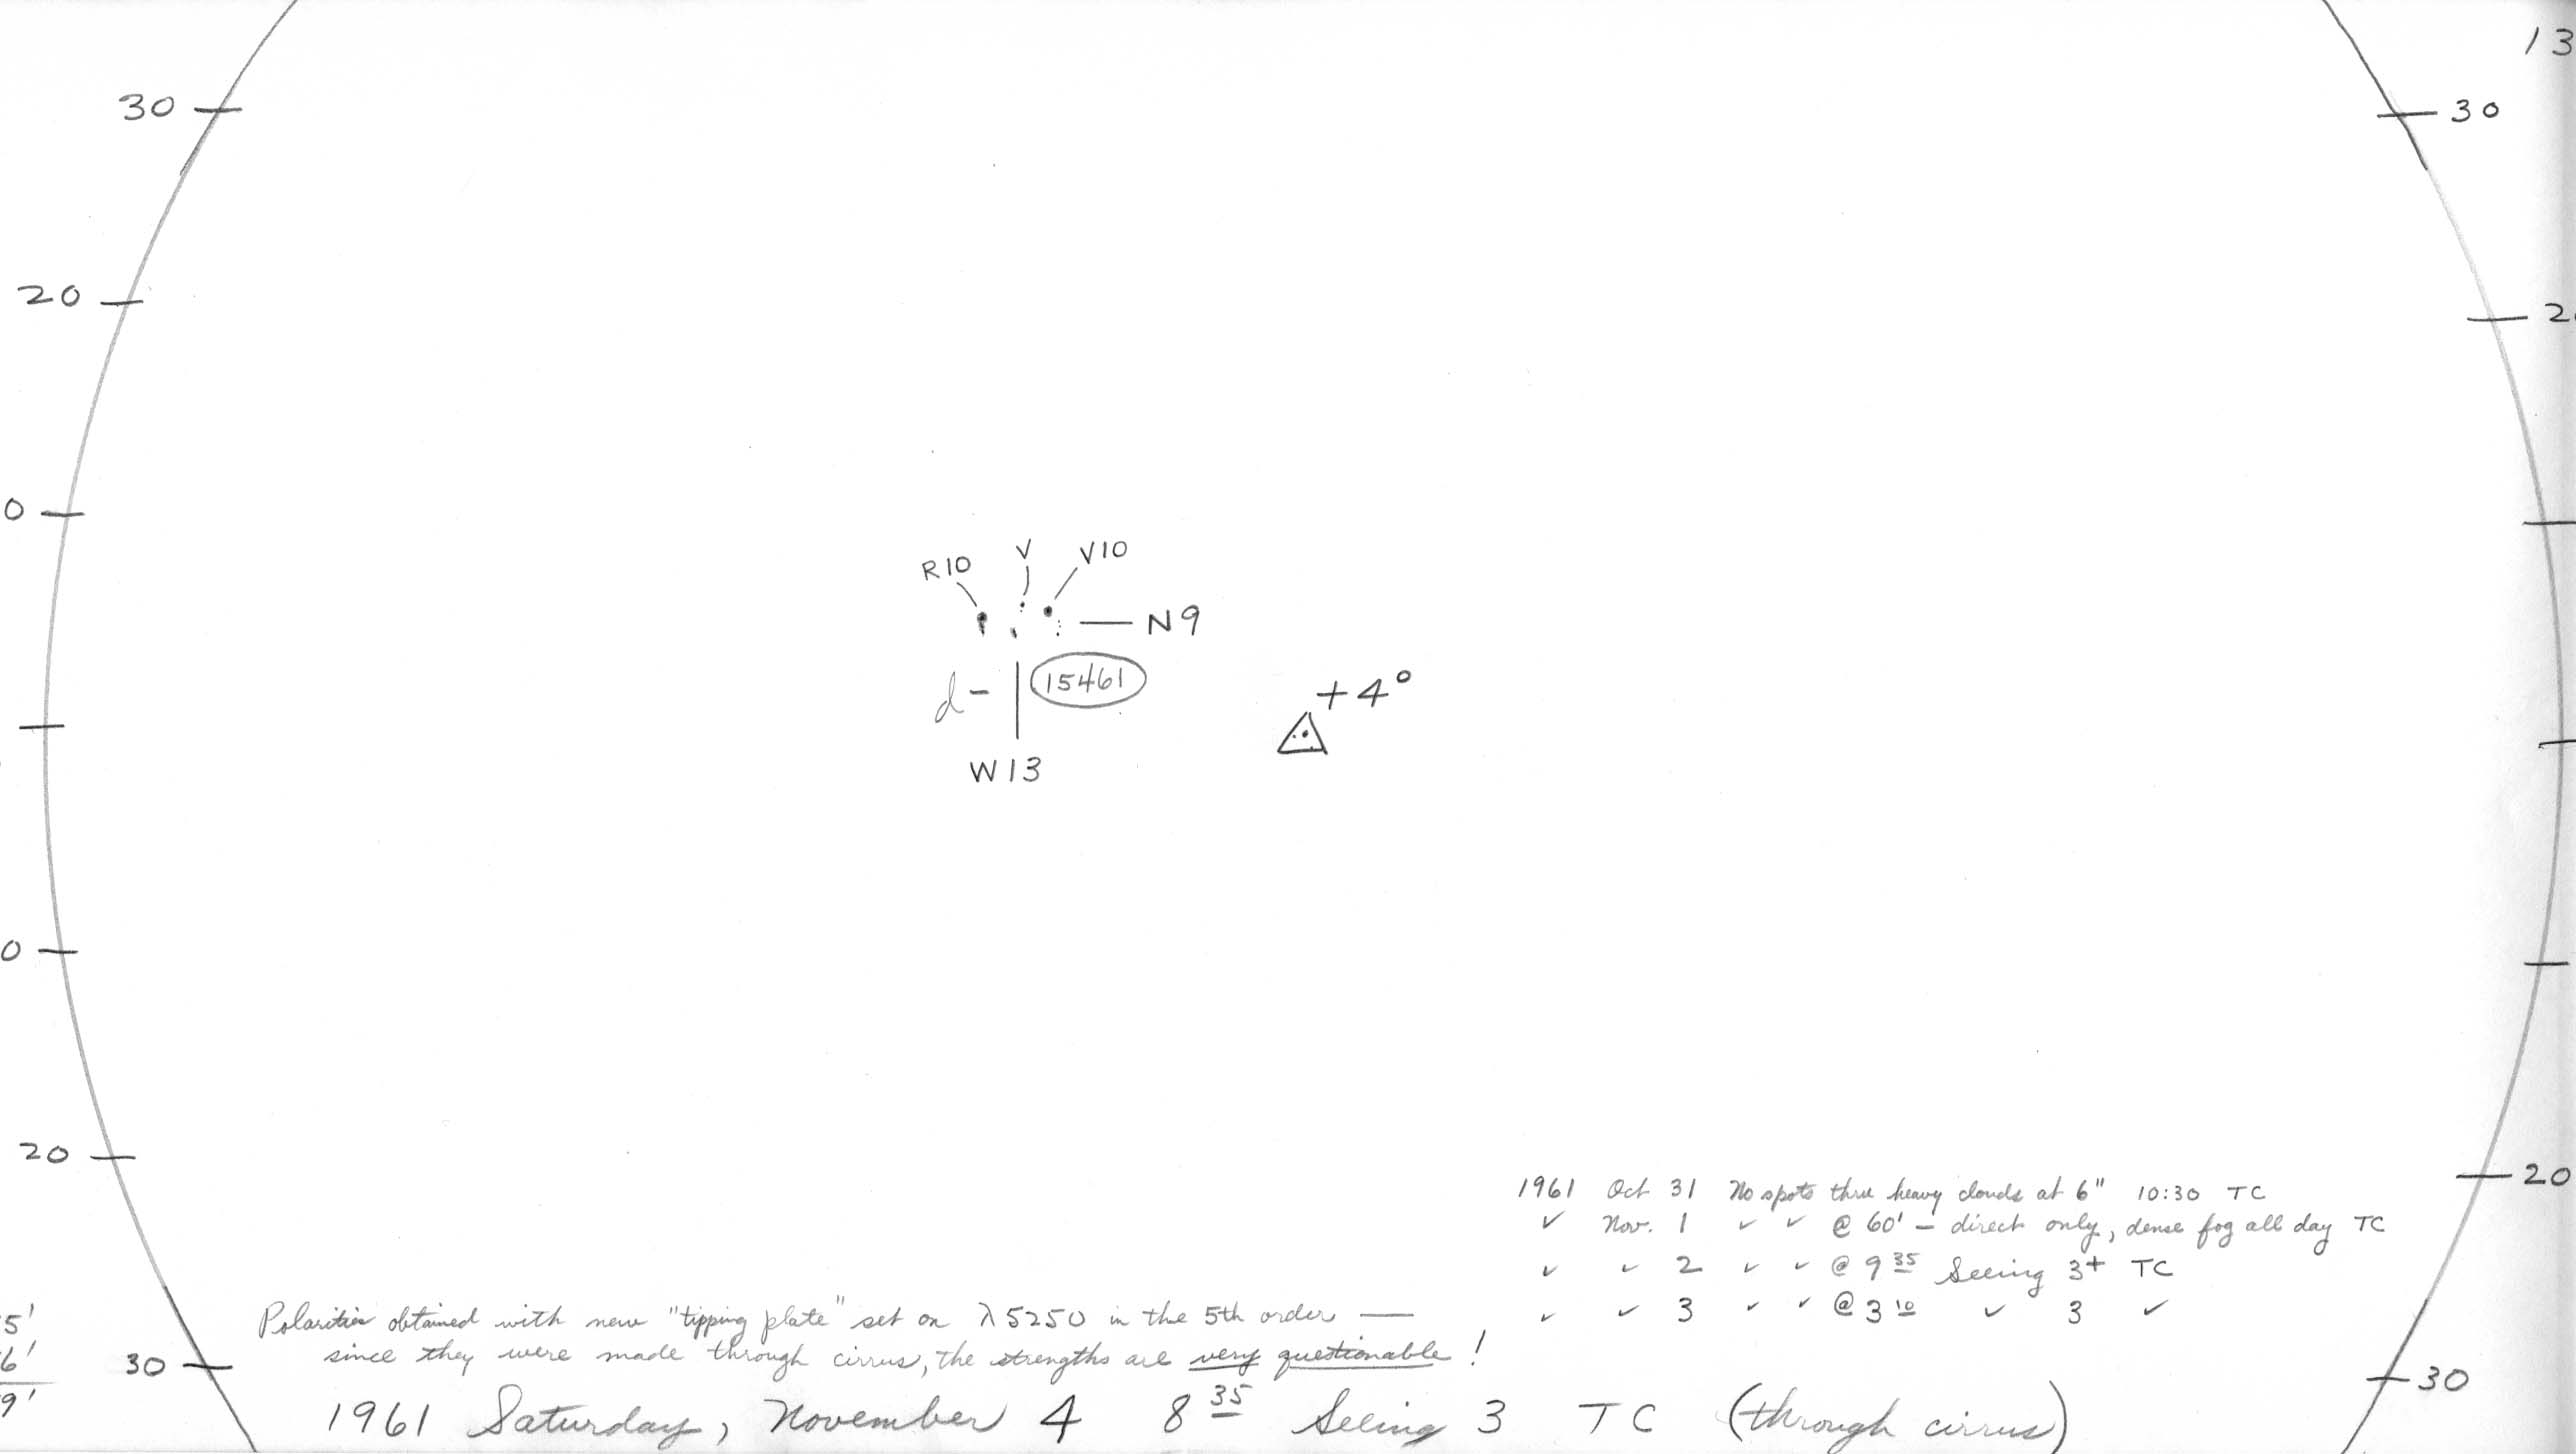 13
30
30
20
2
0
R10
V
V10
N9
d-
15461
+4°
W13
0
20
20
1961 Oct 31 No spots thru heavy clouds at 6" 10:30 TC
✓ Nov. 1 ✓ ✓ @ 60' - direct only, dense fog all day TC
✓ ✓ 2 ✓ ✓ @ 9 35 Seeing 3+ TC
✓ ✓ 3 ✓ ✓ @ 3 10 ✓ 3 ✓
5'
6'
9'
Polarities obtained with new "tipping plate" set on λ5250 in the 5th order —
since they were made through cirrus, the strengths are very questionable!
30
30
1961 Saturday, November 4 8 35 Seeing 3 TC (through cirrus)